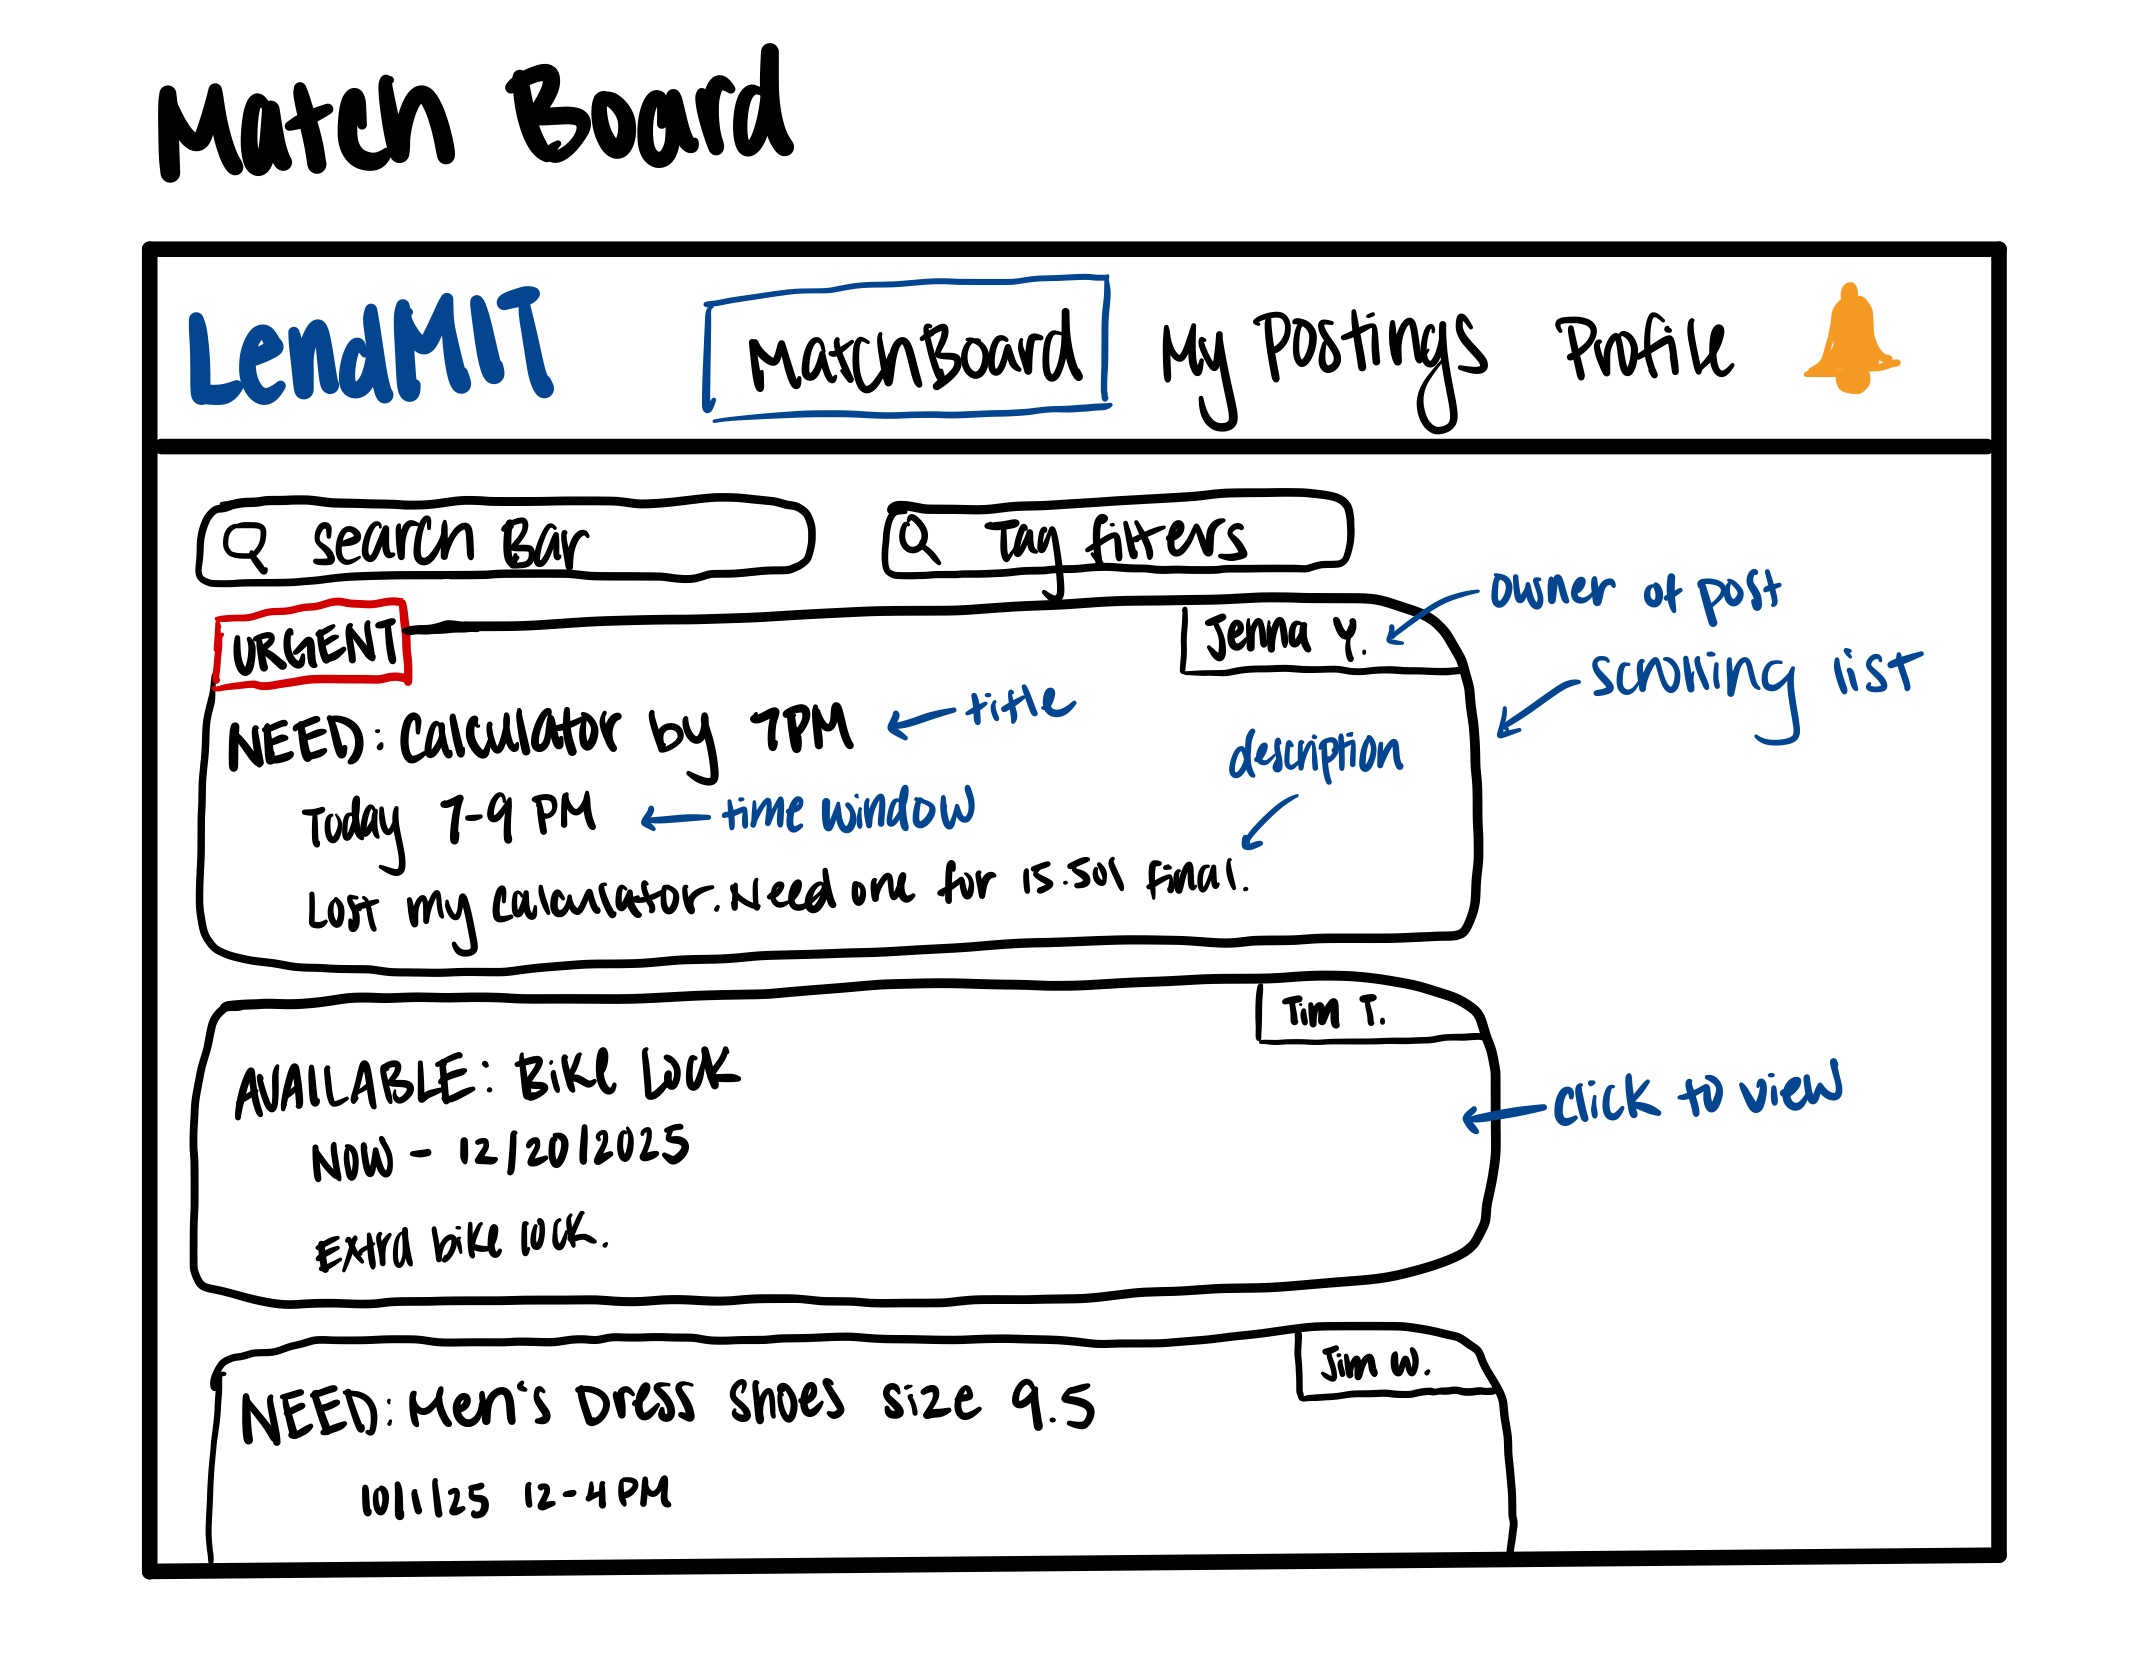 Match Board
LendMIT MatchBoard My Postings Profile
Search Bar Tag filters
owner of post
URGENT Jenna Y.
scrolling list
NEED: Calculator by 7PM ← title
description
Today 7-9 PM ← time window
Lost my calculator. Need one for 15.501 final.
Tim T.
AVAILABLE: Bike Lock
click to view
NOW - 12/20/2025
Extra bike lock.
Jim W.
NEED: Men's Dress Shoes size 9.5
10/1/25 12-4PM